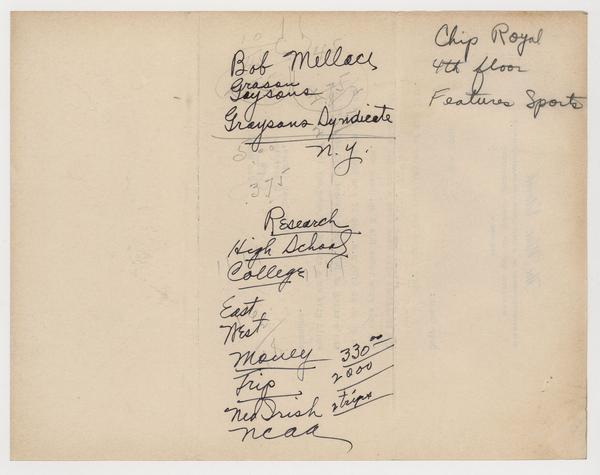 Bob Mellace
Grason
Gaysons
Graysons Syndicate
N.Y.
375
Research
High School
College
East
West
Money 330.00
Trip 2000
Ned Irish 2 trips
NCAA
Chip Royal
4th floor
Features Sports